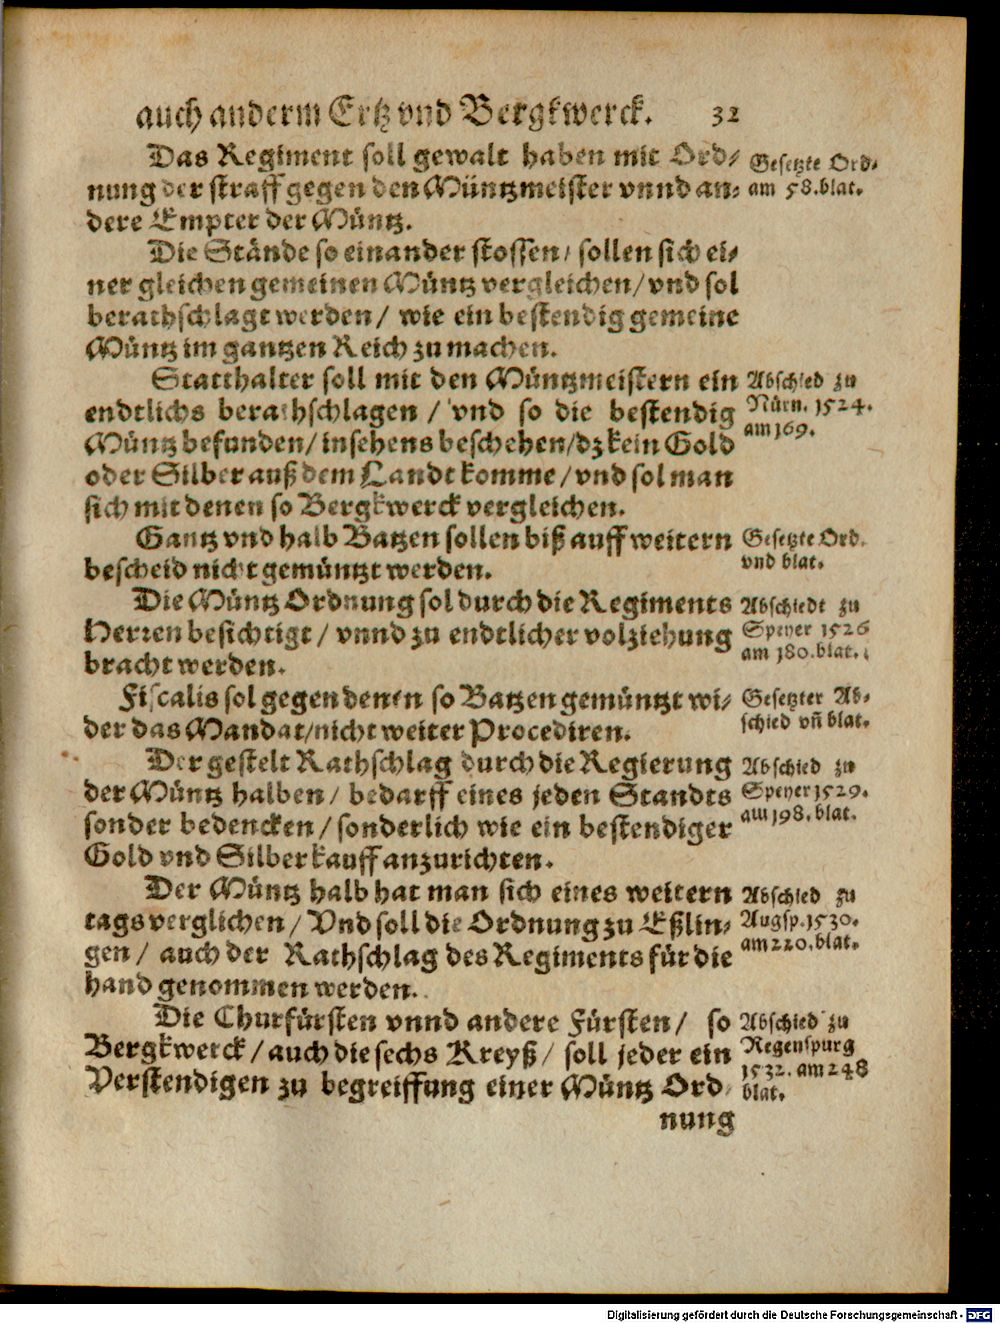 auch anderm Ertz vnd Bergkwerck. 32
Das Regiment soll gewalt haben mit Ord⸗
nung der straff gegen den Müntzmeister vnnd an⸗
dere Empter der Müntz.
Gesetzte Ord⸗
am 58. blat.
Die Stände so einander stossen / sollen sich ei⸗
ner gleichen gemeinen Müntz vergleichen / vnd sol
berathschlagt werden / wie ein bestendig gemeine
Müntz im gantzen Reich zu machen.
Statthalter soll mit den Müntzmeistern ein
endtlichs berathschlagen / vnd so die bestendig
Müntz befunden / insehens beschehen / dz kein Gold
oder Silber auß dem Landt komme / vnd sol man
sich mit denen so Bergkwerck vergleichen.
Abschied zu
Nürn. 1524.
am 169.
Gantz vnd halb Batzen sollen biß auff weitern
bescheid nicht gemüntzt werden.
Gesetzte Ord.
vnd blat.
Die Müntz Ordnung sol durch die Regiments
Herren besichtigt / vnnd zu endtlicher volziehung
bracht werden.
Abschiedt zu
Speyer 1526
am 180. blat.
Fiscalis sol gegen denen so Batzen gemüntzt wi⸗
der das Mandat / nicht weiter Procediren.
Gesetzter Ab⸗
schied vñ blat.
Der gestelt Rathschlag durch die Regierung
der Müntz halben / bedarff eines jeden Standts
sonder bedencken / sonderlich wie ein bestendiger
Gold vnd Silberkauff anzurichten.
Abschied zu
Speyer 1529.
am 198. blat.
Der Müntz halb hat man sich eines weitern
tags verglichen / Vnd soll die Ordnung zu Eßlin⸗
gen / auch der Rathschlag des Regiments für die
hand genommen werden.
Abschied zu
Augsp. 1530.
am 220. blat.
Die Churfürsten vnnd andere Fürsten / so
Bergkwerck / auch die sechs Kreyß / soll jeder ein
Verstendigen zu begreiffung einer Müntz Ord⸗
nung
Abschied zu
Regenspurg
1532. am 248
blat.
Digitalisierung gefördert durch die Deutsche Forschungsgemeinschaft - DFG